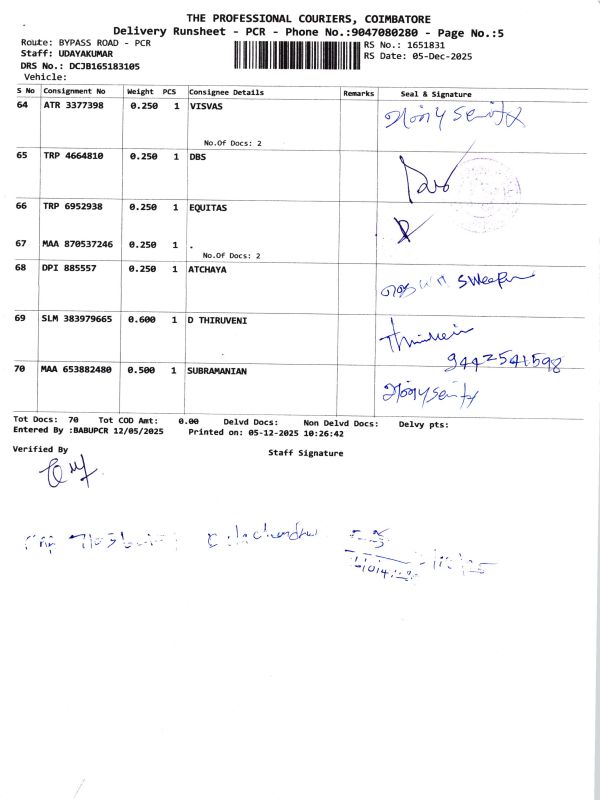 THE PROFESSIONAL COURIERS, COIMBATORE
Delivery Runsheet - PCR - Phone No.:9047080280 - Page No.:5
Route: BYPASS ROAD - PCR
RS No.: 1651831
Staff: UDAYAKUMAR
RS Date: 05-Dec-2025
DRS No.: DCJB165183105
Vehicle:
S No Consignment No Weight PCS Consignee Details Remarks Seal & Signature
64 ATR 3377398 0.250 1 VISVAS
No.Of Docs: 2
65 TRP 4664810 0.250 1 DBS
66 TRP 6952938 0.250 1 EQUITAS
67 MAA 870537246 0.250 1 .
No.Of Docs: 2
68 DPI 885557 0.250 1 ATCHAYA
sweeper
69 SLM 383979665 0.600 1 D THIRUVENI
9442541598
70 MAA 653882480 0.500 1 SUBRAMANIAN
Tot Docs: 70 Tot COD Amt: 0.00 Delvd Docs: Non Delvd Docs: Delvy pts:
Entered By :BABUPCR 12/05/2025 Printed on: 05-12-2025 10:26:42
Verified By
Staff Signature